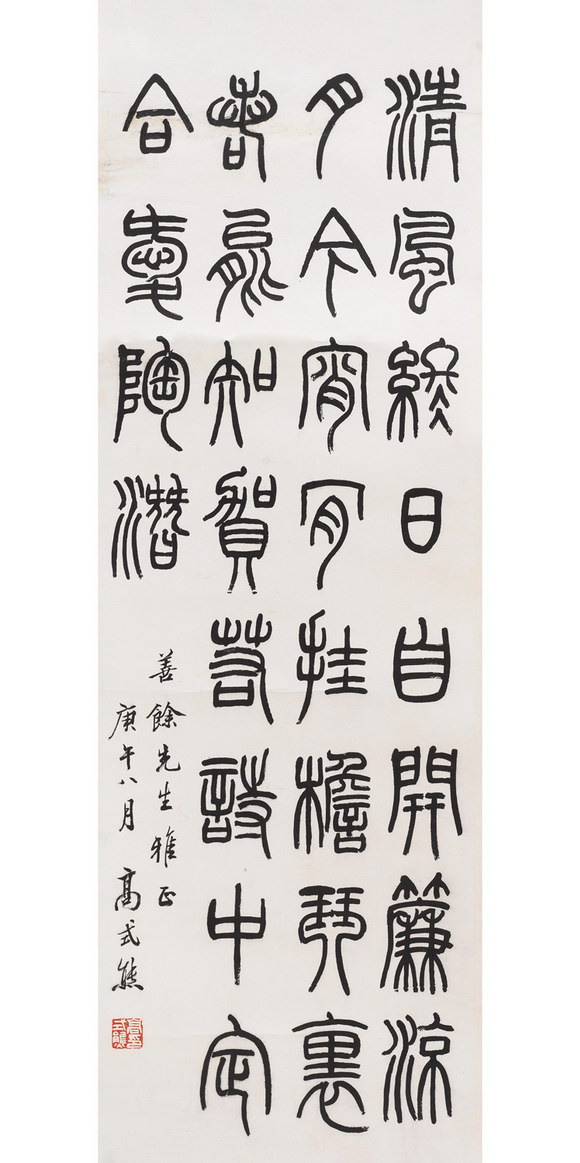 清風終日自開簾涼
月今宵肎挂檐琴裏
若能知賀若詩中定
合愛陶潛
善餘先生雅正
庚午八月 高式熊